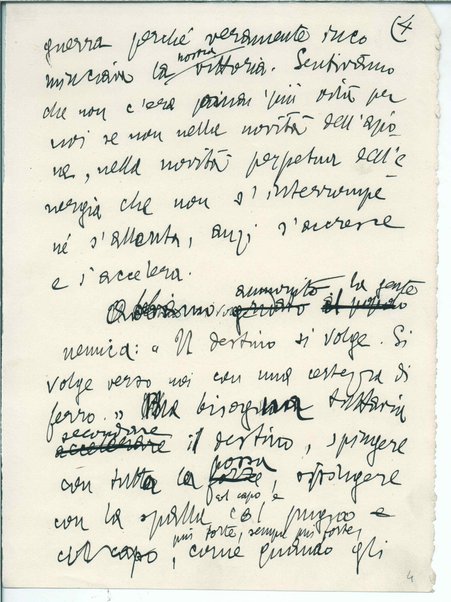 (4
guerra perché veramente inco
minciava la nostra vittoria. Sentivamo
che non c'era omai più vita per
noi se non nella novità dell'azio
ne, nella novità perpetua dell'e
nergia che non s'interrompe
né s'allenta, anzi s'accresce
e s'accelera.
ammonito la gente
nemica: "Il destino si volge. Si
volge verso noi con una certezza di
ferro." Ma bisogna tuttavia
secondare
accelerare il destino, spingere
possa
con tutta la forza,
col capo e
con la spalla col pugno e
più forte, sempre più forte,
col capo, come quando gli
4